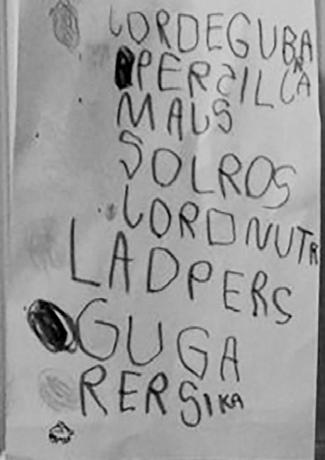 JORDEGUBAR
PERSILLA
MAIS
SOLROS
JORDNUTR
LADPERS
GUGA
RERSIKA